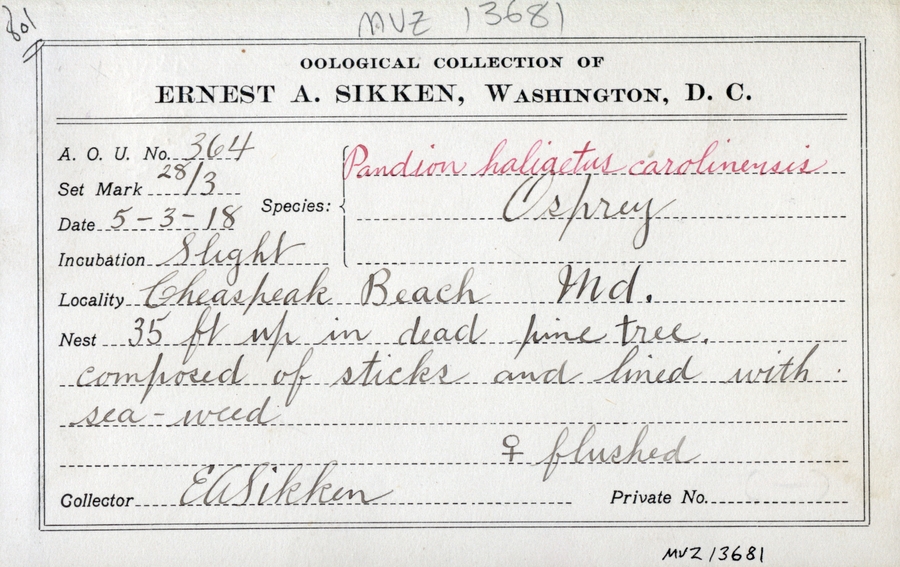 801
MVZ 13681
OOLOGICAL COLLECTION OF
ERNEST A. SIKKEN, WASHINGTON, D. C.
A. O. U. No. 364
Set Mark 28/3
Date 5-3-18
Incubation Slight
Species: Pandion haliaetus carolinensis
Osprey
Locality Cheaspeak Beach Md.
Nest 35 ft up in dead pine tree.
composed of sticks and lined with
sea-weed
♀ flushed
Collector EASikken
Private No.
MVZ 13681